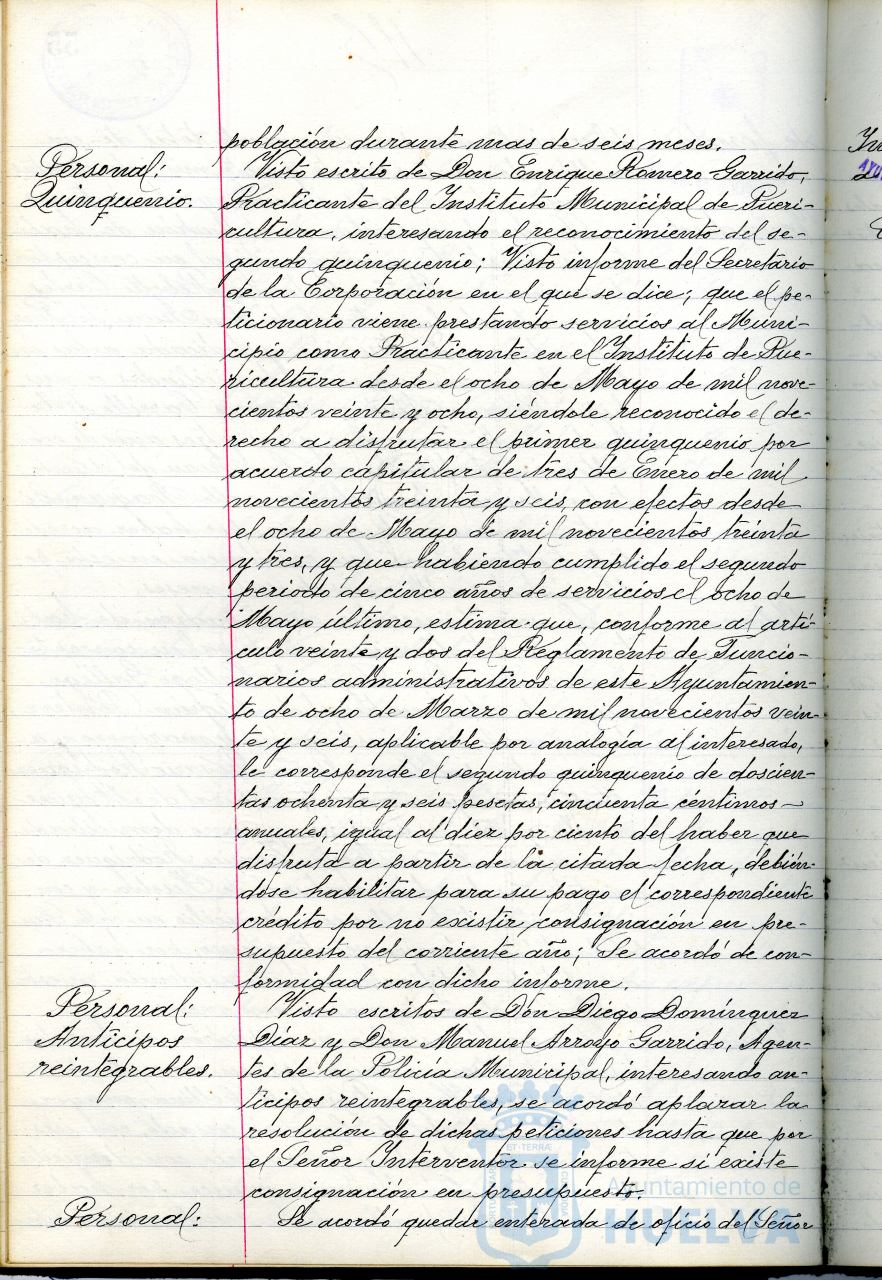 población durante mas de seis meses.
Personal:
Quinquenio.
Visto escrito de Don Enrique Romero Garrido,
Practicante del Instituto Municipal de Pueri-
cultura, interesando el reconocimiento del se-
gundo quinquenio; Visto informe del Secretario
de la Corporación en el que se dice; que el pe-
ticionario viene prestando servicios al Muni-
cipio como Practicante en el Instituto de Pue-
ricultura desde el ocho de Mayo de mil nove-
cientos veinte y ocho, siéndole reconocido el de-
recho a disfrutar el primer quinquenio por
acuerdo capitular de tres de Enero de mil
novecientos treinta y seis, con efectos desde
el ocho de Mayo de mil novecientos treinta
y tres, y que habiendo cumplido el segundo
periodo de cinco años de servicios el ocho de
Mayo último, estima que, conforme al artí-
culo veinte y dos del Reglamento de Funcio-
narios administrativos de este Ayuntamien-
to de ocho de Marzo de mil novecientos vein-
te y seis, aplicable por analogía al interesado,
le corresponde el segundo quinquenio de doscien-
tas ochenta y seis pesetas, cincuenta céntimos
anuales, igual al diez por ciento del haber que
disfruta a partir de la citada fecha, debién-
dose habilitar para su pago el correspondiente
crédito por no existir consignación en pre-
supuesto del corriente año; Se acordó de con-
formidad con dicho informe.
Personal:
Anticipos
reintegrables.
Visto escritos de Don Diego Domínguez
Díaz y Don Manuel Arroyo Garrido, Agen-
tes de la Policía Municipal, interesando an-
ticipos reintegrables, se acordó aplazar la
resolución de dichas peticiones hasta que por
el Señor Interventor se informe si existe
consignación en presupuesto.
Personal:
Se acordó quedar enterada de oficio del Señor
Ayuntamiento de
HUELVA